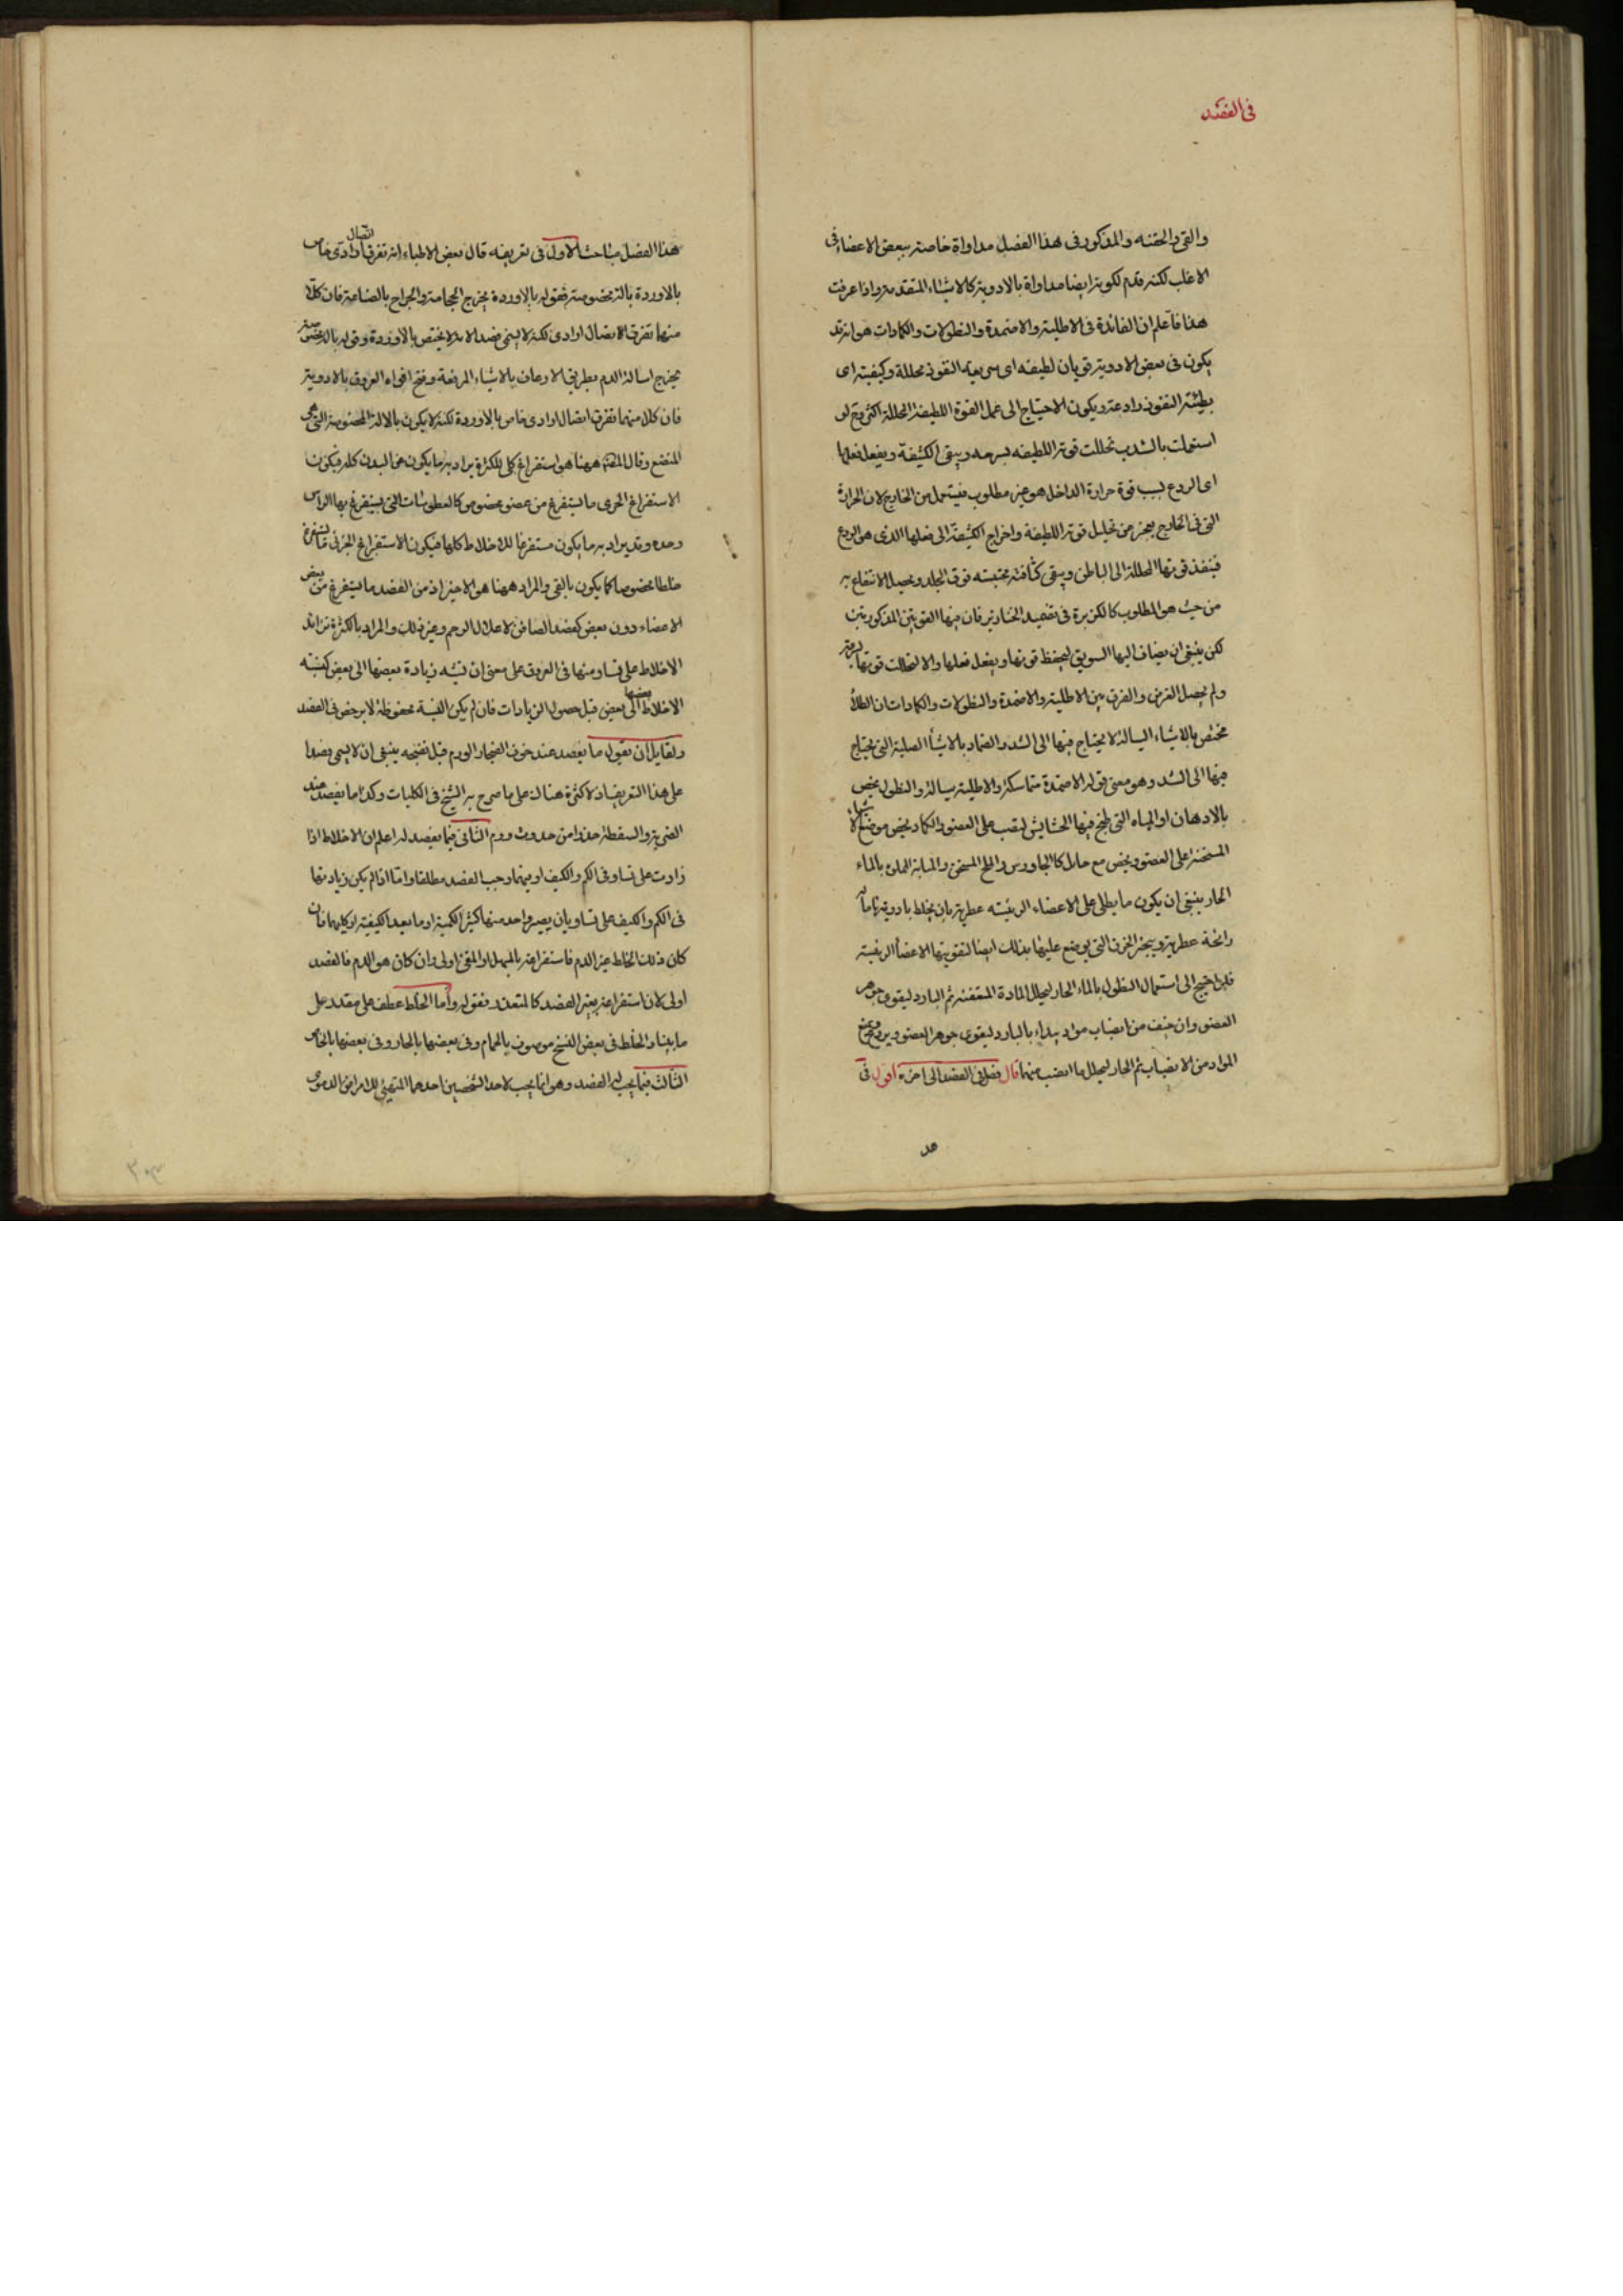 فى الفصد
والقى والحقنه والمذكور فى هذا الفصل مداواة خاصة ببعض الاعضاء فى
الاغلب لكنه قدم لكونه ايضا مداواة بالادوية كالاشياء المتقدمة واذا عرفت
هذا فاعلم ان الفائدة فى الاطلية والاضمدة والنطولات والكمادات هو انه قد
يكون فى بعض الادوية قوتان لطيفه اى سريعة النفوذ محللة وكثيفة اى
بطيئة النفوذ رادعة ويكون الاحتياج الى عمل القوة اللطيفة المحللة اكثر فح لو
استعملت بالشرب تحللت قوته اللطيفه بسرعه ويبقى الكثيفة ويفعل فعلها
اى الردع بسبب قوة حرارة الداخل هو غير مطلوب فيستعمل من الخارج لان الحرارة
التى فى الخارج يعجز من تحليل قوته اللطيفة واخراج الكثيفة الى فعلها الذى هو الردع
فينفذ قوتها المحللة الى الباطن ويبقى كثافته محتبسته فوق الجلد ويحصل الانتفاع به
من حيث هو المطلوب كالكزبرة فى تضميد الخنازير فان فيها القوتين المذكورتين
لكن ينبغى ان يضاف اليها السويق ليحفظ قوتها ويفعل فعلها والا انحلت قوتها بسرعة
ولم يحصل الغرض والفرق بين الاطلية والاضمدة والنطولات والكمادات ان الطلأ
مختص بالاشياء السيالة لا يحتاج فيها الى الشد والضماد بالاشيأ الصلبة التى يحتاج
فيها الى الشد وهو معنى قوله الاضمدة متماسكة والاطلية سيالة والنطول يخص
بالادهان او المياه التى طبخ فيها الحشايش ليصب على العضو والكماد يخص موضع الاشياء
المسخنة على العضو ويخص مع حامل كالجاورس والملح المسخن والمثانة المملوة بالماء
الحار ينبغى ان يكون ما يطلى على الاعضاء الرئيسه عطرية بان يخلط بادوية ما له
رائحة عطرية ويبخر الخرق التى يوضع عليها بذلك ايضا لتقويتها الاعضأ الرئيسة
فلو احتيج الى استعمال النطول بالماء الحار ليحلل المادة المتعفنة ثم البارد ليقوى جوهر
العضو وان خيف من انصباب مواد يبدا بالبارد ليقوى جوهر العضو ويردع ويمنع
المواد من الانصباب ثم الحار ليحلل ما انصب منها قال فصل فى الفصد الى اخره اقول فى
هد
هذا الفصل مباحث الاول فى تعريفه قال بعض الاطباء انه تفرق اتصال ارادى خاص
بالاوردة بالة مخصوصة فقوله بالاوردة يخرج الحجامة والجراح بالصناعة فان كلا
منهما تفرق الاتصال ارادى لكنه لا يسمى فصدا لانه لا يختص بالاوردة وقوله بالة مخصوصة
يخرج اسالة الدم بطريق الارعاف بالاشياء المرعفة وفتح افواه العروق بالادوية
فان كلا منهما تفرق اتصال ارادى خاص بالاوردة لكنه لا يكون بالالة المخصوصة التى هى
المبضع وقال المصنف ههنا هو استفراغ كلى للكثرة يراد به ما يكون من البدن كله فيكون
الاستفراغ الجزى ما يستفرغ من عضو مخصوص كالعطوسات التى يستفرغ بها الراس
وحده وقد يراد به ما يكون مستفرغا للاخلاط كلها فيكون الاستفراغ الجزئى ما يستفرغ
خلطا مخصوصا كما يكون بالقى والمراد ههنا هو الاحتراز من الفصد ما يستفرغ من بعض
الاعضاء دون بعض كفصد الصافن لاعلال الرحم وغير ذلك والمراد بالكثرة تزايد
الاخلاط على تساو منها فى العروق على معنى ان نسبه زيادة بعضها الى بعض كنسبته
الاخلاط بعضها الى بعض قبل حصول الزيادات فان لم يكن النسبة محفوظة لا يرخص فى الفصد
ولقايل ان يقول ما يفصد عند خوف انفجار الورم قبل نضجه ينبغى ان لا يسمى فصدا
على هذا التعريف اذ لا كثرة هناك على ما صرح به الشيخ فى الكليات وكذا ما يفصد عند
الضربة والسقطة حذرا من حدوث ورم الثانى فيما يفصد له اعلم ان الاخلاط اذا
زادت على تساو فى الكم والكيف او فيهما وجب الفصد مطلقا واما اذا لم يكن زيادتها
فى الكم والكيف على تساو بان يصير واحد منها كثير الكمية او ما بعيد الكيفية او كليهما فان
كان ذلك الخلط غير الدم فاستفراغه بالمسهل او المقئ اولى وان كان هو الدم فالفصد
اولى لان استفراغه بغير الفصد كالمتعذر فقوله واما الخلط عطف على مقدر على
ما بينا والخلط فى بعض النسخ موصوف بالخام وفى بعضها بالحار وفى بعضها بالخاص
الثالث فيما يجب له الفصد وهو انما يجب لاحد الشخصين احدهما المتهيئ للامراض الدموى
٣٠٣